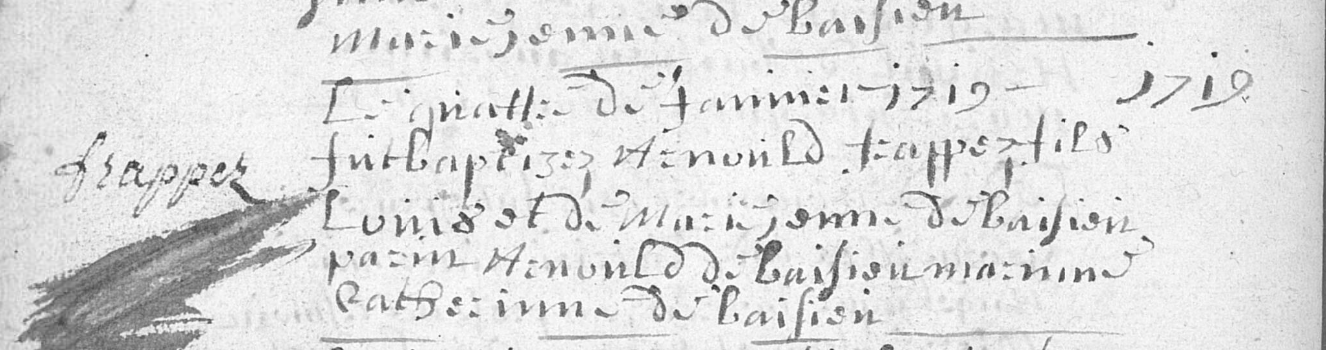 mariejenne de baisieu
Le quattre de Januier 1719 - 1719
frappez
fut baptizez Arnould frappez fils
Louis et de mariejenne de baisieu
parin Arnould de baisieu marinne
Catherinne de baisieu